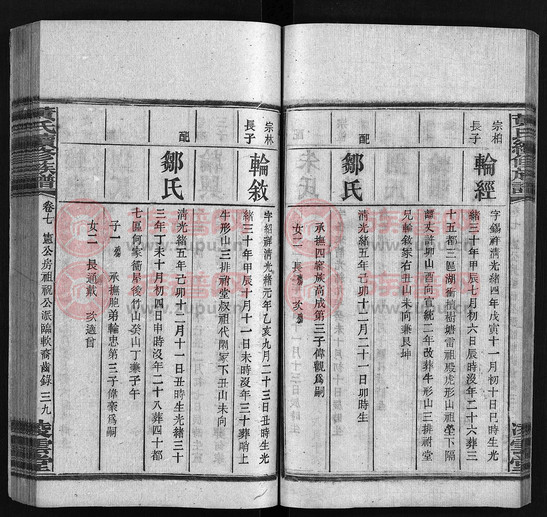 黃氏續修族譜
宗柏長子
輪經
字錫祥清光緒四年戊寅十一月初十日巳時生光
緒三十年甲辰七月初六日辰時沒年二十六葬三
十五都三區湖衝植樹塘雷祖殿虎形山祖塋下隔
兄輪敘家右山丑山未向兼艮坤
配
鄒氏
清光緒五年己卯十二月二十一日卯時生
承撫四房族商成第三子偉觀爲嗣
女二 長適 次適
凌雲堂
宗林長子
輪敘
字紹祥清光緒元年乙亥九月二十三日丑時生光
緒三十年甲辰十月十一日未時沒年三十葬晭上
牛形山三排祔堂叔祖代岡冢下丑山未向
配
鄒氏
清光緒五年己卯十二月十一日丑時生光緒三十
三年丁未十月初四日申時沒年二十八葬四十都
七區何家衝屋後竹山癸山丁兼子午
子一 承撫胞弟輪忠第三子偉豪爲嗣
女二 長適戴 次適曾
黃氏續修族譜
卷七 憲公房祖祝公派臨軟裔齒錄 三九
凌雲堂